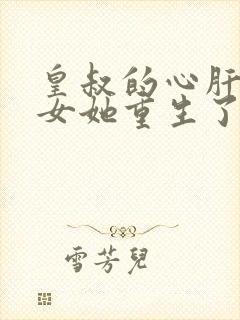 皇叔的心肝
女她重生了
雪芳兒